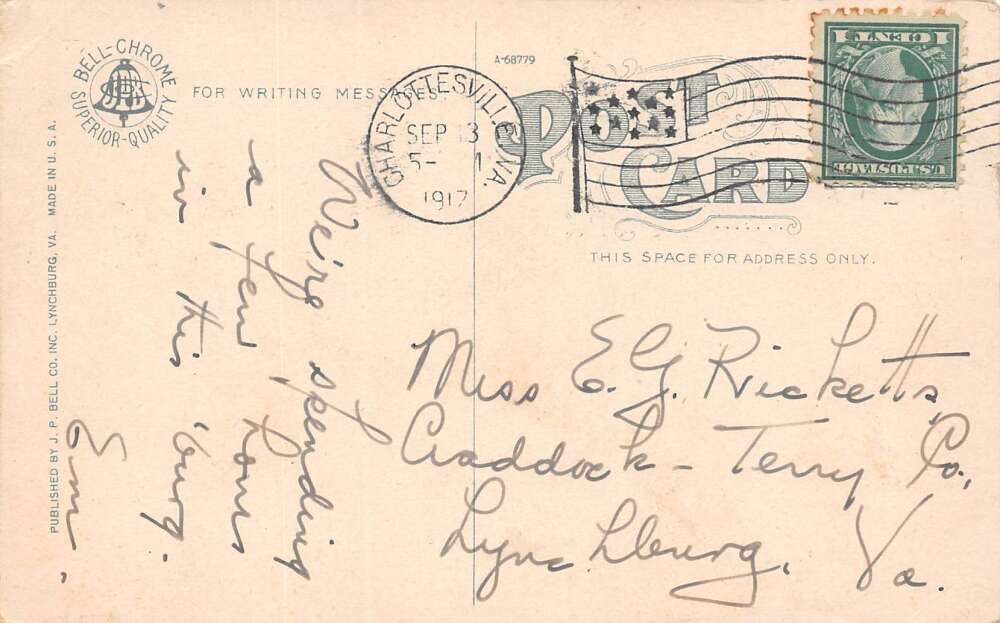 BELL-CHROME
SUPERIOR-QUALITY
FOR WRITING MESSAGES.
A-68779
POST
CARD
THIS SPACE FOR ADDRESS ONLY.
PUBLISHED BY J. P. BELL CO. INC. LYNCHBURG, VA. MADE IN U. S. A.
CHARLOTTESVILLE, VA.
SEP 13
5-
1917
1 CENT 1
U.S. POSTAGE
We're spending
a few hours
in this 'burg.
Miss E. G. Ricketts,
Craddock-Terry Co.,
Lynchburg, Va.